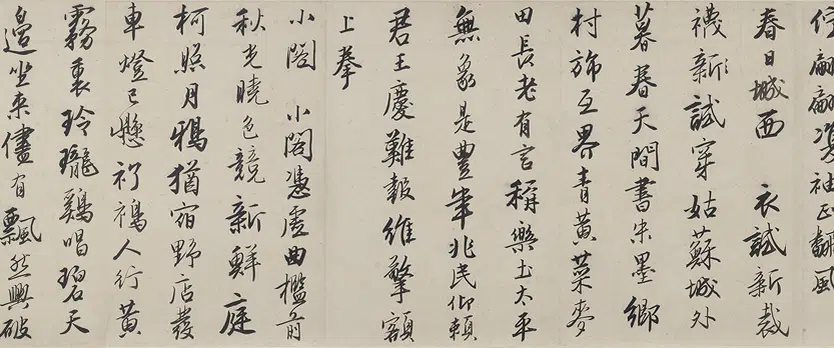 袖正翻風
春日城西 衣試新裁
襪新試穿姑蘇城外
暮春天間書朱墨鄉
村旆互界青黃菜麥
田長老有言稱樂土太平
無象是豐年兆民仰賴
君王慶難報維擎額
上拳
小閣 小閣憑虛曲檻前
秋光曉色競新鮮庭
柯照月鴉猶宿野店發
車燈已懸人行黃
霧裏玲瓏鷄唱碧天
邊坐來儘有飄然興破